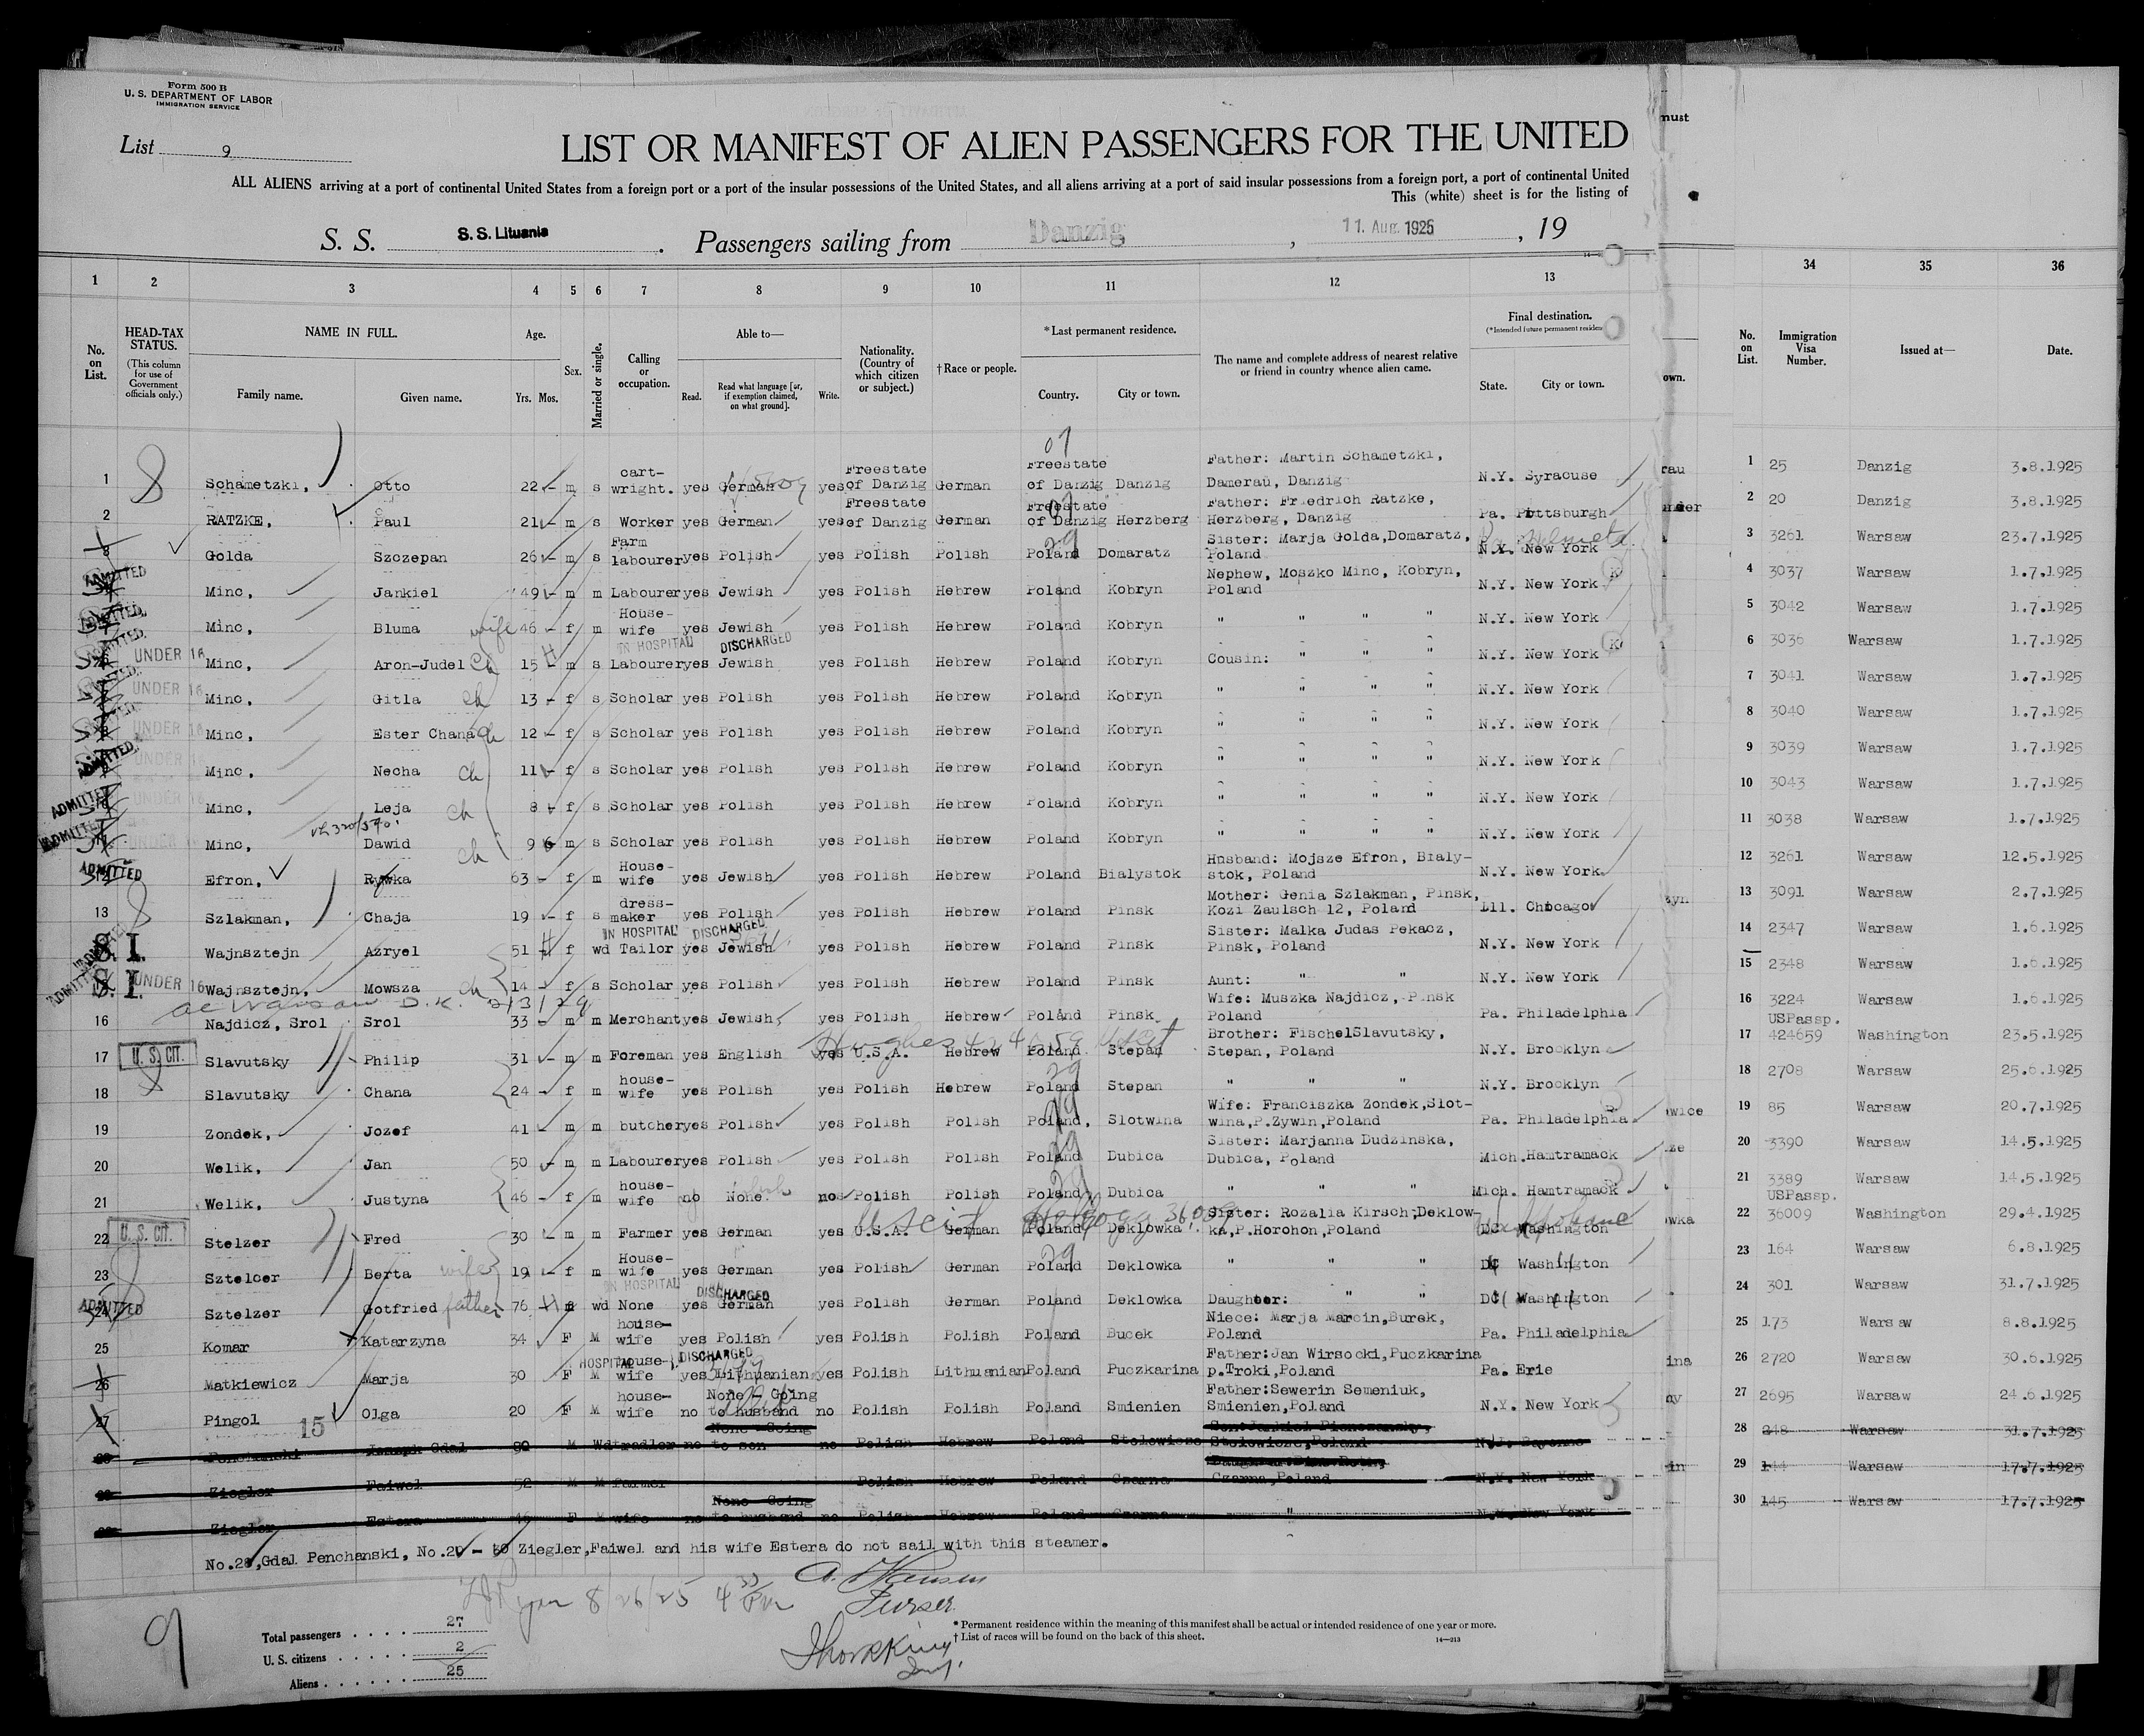 Form 500 B
U. S. DEPARTMENT OF LABOR
IMMIGRATION SERVICE
List 9
LIST OR MANIFEST OF ALIEN PASSENGERS FOR THE UNITED
ALL ALIENS arriving at a port of continental United States from a foreign port or a port of the insular possessions of the United States, and all aliens arriving at a port of said insular possessions from a foreign port, a port of continental United
This (white) sheet is for the listing of
S. S. S. S. Lituania . Passengers sailing from Danzig , 11. Aug. 1925 , 19
1 2 3 4 5 6 7 8 9 10 11 12 13 34 35 36
No. on List. HEAD-TAX STATUS. (This column for use of Government officials only.) NAME IN FULL. Family name. Given name. Age. Yrs. Mos. Sex. Married or single. Calling or occupation. Able to— Read. Read what language [or, if exemption claimed, on what ground]. Write. Nationality. (Country of which citizen or subject.) †Race or people. *Last permanent residence. Country. City or town. The name and complete address of nearest relative or friend in country whence alien came. Final destination. (*Intended future permanent residen State. City or town. No. on List. Immigration Visa Number. Issued at— Date.
1 Schametzki, Otto 22 - m s cart-wright. yes German yes Freestate of Danzig German Freestate of Danzig Danzig Father: Martin Schametzki, Damerau, Danzig N.Y. Syracuse 1 25 Danzig 3.8.1925
2 RATZKE, Paul 21 - m s Worker yes German yes Freestate of Danzig German Freestate of Danzig Herzberg Father: Friedrich Ratzke, Herzberg, Danzig Pa. Pittsburgh 2 20 Danzig 3.8.1925
3 Golda Szczepan 26 - m s Farm labourer yes Polish yes Polish Polish Poland Domaratz Sister: Marja Golda, Domaratz, Poland N.Y. New York 3 3261 Warsaw 23.7.1925
ADMITTED Minc, Jankiel 49 - m m Labourer yes Jewish yes Polish Hebrew Poland Kobryn Nephew, Moszko Minc, Kobryn, Poland N.Y. New York 4 3037 Warsaw 1.7.1925
ADMITTED Minc, Bluma wife 46 - f m House-wife yes Jewish yes Polish Hebrew Poland Kobryn " " " N.Y. New York 5 3042 Warsaw 1.7.1925
IN HOSPITAL DISCHARGED
ADMITTED UNDER 16 Minc, Aron-Judel Ch 15 - m s Labourer yes Jewish yes Polish Hebrew Poland Kobryn Cousin: " " " N.Y. New York 6 3036 Warsaw 1.7.1925
ADMITTED UNDER 16 Minc, Gitla ch 13 - f s Scholar yes Polish yes Polish Hebrew Poland Kobryn " " " " N.Y. New York 7 3041 Warsaw 1.7.1925
ADMITTED UNDER 16 Minc, Ester Chana ch 12 - f s Scholar yes Polish yes Polish Hebrew Poland Kobryn " " " " N.Y. New York 8 3040 Warsaw 1.7.1925
ADMITTED UNDER 16 Minc, Necha ch 11 - f s Scholar yes Polish yes Polish Hebrew Poland Kobryn " " " " N.Y. New York 9 3039 Warsaw 1.7.1925
ADMITTED UNDER 16 Minc, Leja ch 8 - f s Scholar yes Polish yes Polish Hebrew Poland Kobryn " " " " N.Y. New York 10 3043 Warsaw 1.7.1925
ADMITTED UNDER 16 Minc, Dawid ch 9 6 m s Scholar yes Polish yes Polish Hebrew Poland Kobryn " " " " N.Y. New York 11 3038 Warsaw 1.7.1925
ADMITTED Efron, Rywka 63 - f m House-wife yes Jewish yes Polish Hebrew Poland Bialystok Husband: Mojsze Efron, Bialy-stok, Poland N.Y. New York 12 3261 Warsaw 12.5.1925
13 Szlakman, Chaja 19 - f s dress-maker yes Polish yes Polish Hebrew Poland Pinsk Mother: Genia Szlakman, Pinsk, Kozi Zaulsch 12, Poland Ill. Chicago 13 3091 Warsaw 2.7.1925
IN HOSPITAL DISCHARGED
S. I. Wajnsztejn Azryel 51 f wd Tailor yes Jewish yes Polish Hebrew Poland Pinsk Sister: Malka Judas Pekacz, Pinsk, Poland N.Y. New York 14 2347 Warsaw 1.6.1925
ADMITTED S. I. UNDER 16 Wajnsztejn, Mowsza ch 14 - f s Scholar yes Polish yes Polish Hebrew Poland Pinsk Aunt: " " N.Y. New York 15 2348 Warsaw 1.6.1925
16 Najdicz, Srol Srol 33 - m m Merchant yes Jewish yes Polish Hebrew Poland Pinsk Wife: Muszka Najdicz, Pinsk Poland Pa. Philadelphia 16 3224 Warsaw 1.6.1925
17 U. S. CIT. Slavutsky Philip 31 - m m Foreman yes English yes U.S.A. Hebrew Poland Stepan Brother: FischelSlavutsky, Stepan, Poland N.Y. Brooklyn 17 USPassp. 424659 Washington 23.5.1925
18 Slavutsky Chana 24 - f m house-wife yes Polish yes Polish Hebrew Poland Stepan " " " N.Y. Brooklyn 18 2708 Warsaw 25.6.1925
19 Zondek, Jozef 41 - m m butcher yes Polish yes Polish Polish Poland, Slotwina Wife: Franciszka Zondek,Slot-wina,P.Zywin,Poland Pa. Philadelphia 19 85 Warsaw 20.7.1925
20 Welik, Jan 50 - m m Labourer yes Polish yes Polish Polish Poland Dubica Sister: Marjanna Dudzinska, Dubica, Poland Mich. Hamtramack 20 3390 Warsaw 14.5.1925
21 Welik, Justyna 46 - f m house-wife no None no Polish Polish Poland Dubica " " " Mich. Hamtramack 21 3389 Warsaw 14.5.1925
22 U. S. CIT. Stelzer Fred 30 - m m Farmer yes German yes U.S.A. German Poland Deklowka Sister: Rozalia Kirsch,Deklow-ka,P.Horohon,Poland DC Washington 22 USPassp. 36009 Washington 29.4.1925
23 Sztelcer Berta wife 19 - f m House-wife yes German yes Polish German Poland Deklowka " " " DC Washington 23 164 Warsaw 6.8.1925
IN HOSPITAL DISCHARGED
ADMITTED 24 Sztelzer Gotfried father 76 wd None yes German yes Polish German Poland Deklowka Daughter: " " DC Washington 24 301 Warsaw 31.7.1925
25 Komar Katarzyna 34 F M house-wife yes Polish yes Polish Polish Poland Bucek Niece: Marja Marcin,Burek, Poland Pa. Philadelphia 25 173 Warsaw 8.8.1925
HOSPITAL DISCHARGED
26 Matkiewicz Marja 30 F M house-wife yes Lithuanian yes Polish Lithuanian Poland Puczkarina Father:Jan Wirsocki,Puczkarina p.Troki,Poland Pa. Erie 26 2720 Warsaw 30.6.1925
27 Pingol 15 Olga 20 F M house-wife no None - Going to husband no Polish Polish Poland Smienien Father:Sewerin Semeniuk, Smienien,Poland N.Y. New York 27 2695 Warsaw 24.6.1925
Gdal M Wd no None Going to son no Polish Hebrew Poland Stolowicze Stolowicze,Poland N.J. Bayonne 28 248 Warsaw 31.7.1925
Ziegler Faiwel 52 M M farmer Polish Hebrew Poland Czarna Czarna,Poland N.Y. New York 29 144 Warsaw 17.7.1925
Ziegler Estera 46 F M wife no None Going to husband no Polish Hebrew Poland Czarna " N.Y. New York 30 145 Warsaw 17.7.1925
No.28,Gdal Penchanski, No.29 - 30 Ziegler,Faiwel and his wife Estera do not sail with this steamer.
8/26/25 4 33 PM
Purser.
9
Total passengers . . . . 27
U. S. citizens . . . . . 2
Aliens . . . . . . 25
* Permanent residence within the meaning of this manifest shall be actual or intended residence of one year or more.
† List of races will be found on the back of this sheet.
14—213